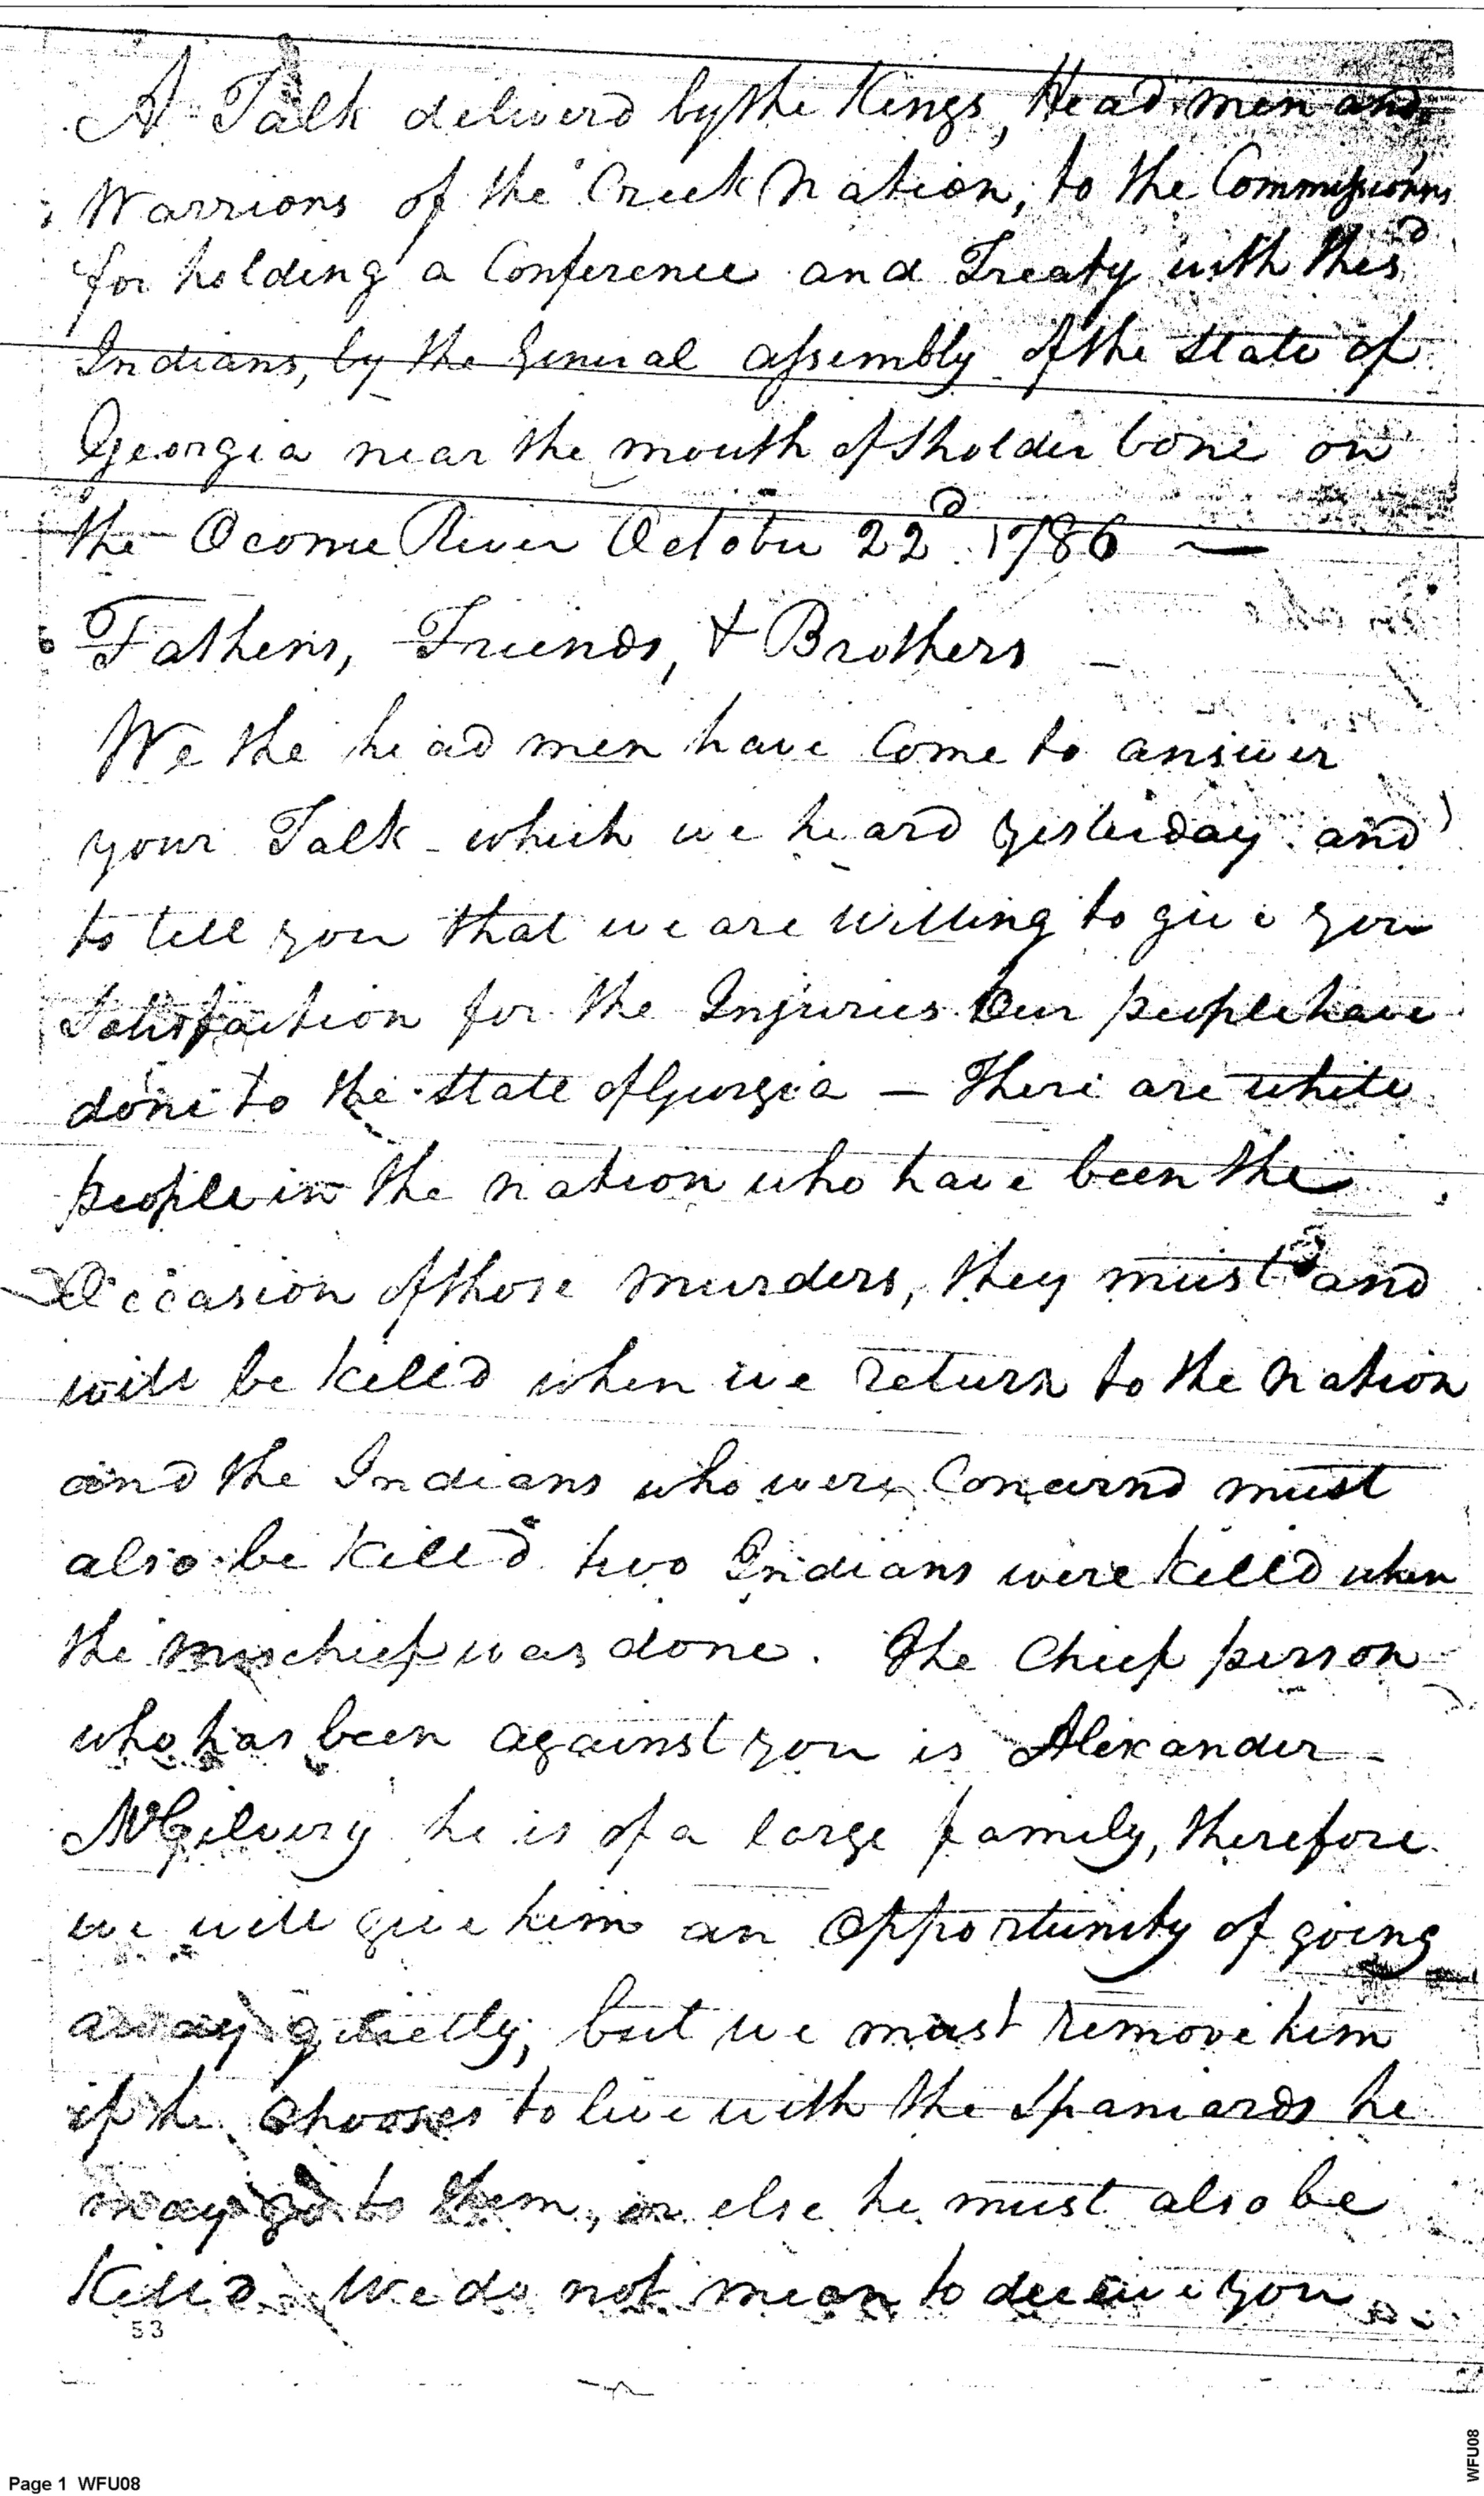 A Talk deliverd by the Kings, Head men and
Warriors of the Creek Nation, to the Commissioners
for holding a Conference and Treaty with the sd
Indians, by the General assembly of the State of
Georgia near the mouth of Sholder bone on
the Oconne River October 22d 1786 —
Fathers, Friends, & Brothers —
We the head men have Come to answer
your Talk which we heard yesterday and
to tell you that we are willing to give you
Satisfaction for the Injuries Our people have
done to the State of Georgia — There are white
people in the nation who have been the
Occasion of those murders, they must and
will be kill'd when we return to the nation
and the Indians who were Concernd must
also be kill'd two Indians were killd when
the mischief was done. The Chief person
who has been against you is Alexander
McGilvery he is of a large family, therefore
we will give him an Opportunity of going
away quietly, but we must remove him
if he chooses to live with the Spaniards he
may go to them, or else he must also be
Kill'd We do not mean to deceive you
53
Page 1 WFU08
WFU08